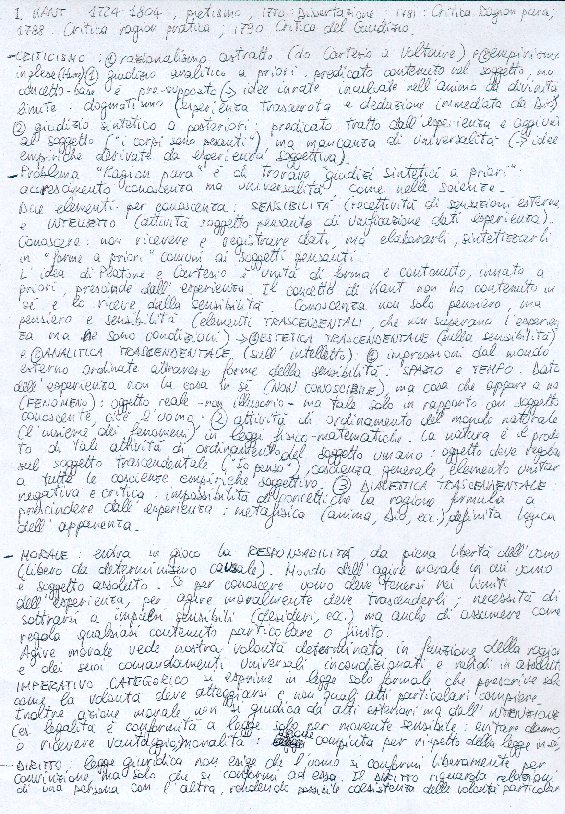 I. KANT 1724-1804, pietismo, 1770: Dissertazione 1781: Critica Ragion pura,
1788: Critica ragion pratica, 1790 Critica del Giudizio.
- CRITICISMO: ① razionalismo astratto (da Cartesio a Voltaire) e ② empirismo
inglese (Hume) ① giudizio analitico a priori: predicato contenuto nel soggetto, ma
concetto-base è pre-supposto (→ idee innate inculcate nell'anima da divinità
limite: dogmatismo (esperienza trascurata e deduzione immediata da Dio).
② giudizio sintetico a posteriori: predicato tratto dall'esperienza e aggiunto
al soggetto ("i corpi sono pesanti"), ma mancanza di universalità (→ idee
empiriche derivate da esperienza soggettiva).
- Problema "Ragion pura" è di trovare "giudizi sintetici a priori":
accrescimento conoscenza ma universalità come nelle scienze.
Due elementi per conoscenza: SENSIBILITÀ (recettività di sensazioni esterne
e INTELLETTO (attività soggetto pensante di unificazione dati esperienza).
Conoscere: non ricevere e registrare dati, ma elaborarli, sintetizzarli
in "forme a priori" comuni ai soggetti pensanti.
L'idea di Platone e Cartesio è unità di forma e contenuto, innato a
priori, prescinde dall'esperienza. Il concetto di Kant non ha contenuto in
sé e lo riceve dalla sensibilità. Conoscenza non solo pensiero, ma
pensiero e sensibilità (elementi TRASCENDENTALI, che non superano l'esperien
za ma ne sono condizioni) → ① ESTETICA TRASCENDENTALE (sulla sensibilità)
e ② ANALITICA TRASCENDENTALE (sull'intelletto). ① impressioni dal mondo
esterno ordinate attraverso forme della sensibilità: SPAZIO e TEMPO. Dato
dell'esperienza non la cosa in sé (NON CONOSCIBILE), ma cosa che appare a noi
(FENOMENO): oggetto reale - non illusorio - ma tale solo in rapporto con soggetto
conoscente, cioè l'uomo. ② attività di ordinamento del mondo naturale
(l'insieme dei fenomeni) in leggi fisico-matematiche. La natura è il prodot
to di tali attività di ordinamento del soggetto umano: oggetto deve regolarsi
sul soggetto trascendentale ("io penso"), coscienza generale elemento unitar
a tutte le coscienze empiriche soggettive. ③ DIALETTICA TRASCENDENTALE:
negativa e critica: impossibilità di concetti che la ragione formula a
prescindere dall'esperienza: metafisica (anima, Dio, ecc.) definita logica
dell'apparenza.
- MORALE: entra in gioco la RESPONSABILITÀ, da piena libertà dell'uomo
(libero da determinismo causale). Mondo dell'agire morale in cui uomo
è soggetto assoluto. Se per conoscere uomo deve tenersi nei limiti
dell'esperienza, per agire moralmente deve trascenderli; necessità di
sottrarsi a impulsi sensibili (desideri, ecc.) ma anche di assumere come
regola qualsiasi contenuto particolare o finito.
Agire morale vede nostra volontà determinata in funzione della ragione
e dei suoi comandamenti universali, incondizionati e validi in assoluto.
IMPERATIVO CATEGORICO si esprime in legge solo formale che prescrive solo
come la volontà deve atteggiarsi e non quali atti particolari compiere.
Inoltre azione morale non si giudica da atti esteriori ma dall'INTENZIONE
(es. legalità è conformità a legge solo per movente sensibile: evitare danno
o ricevere vantaggio; moralità: azione compiuta per rispetto della legge in sé).
DIRITTO: legge giuridica non esige che l'uomo si conformi liberamente per
convinzione, ma solo che si conformi ad essa. Il DIRITTO riguarda relazioni
di una persona con l'altra, rendendo possibile coesistenza delle volontà particolari